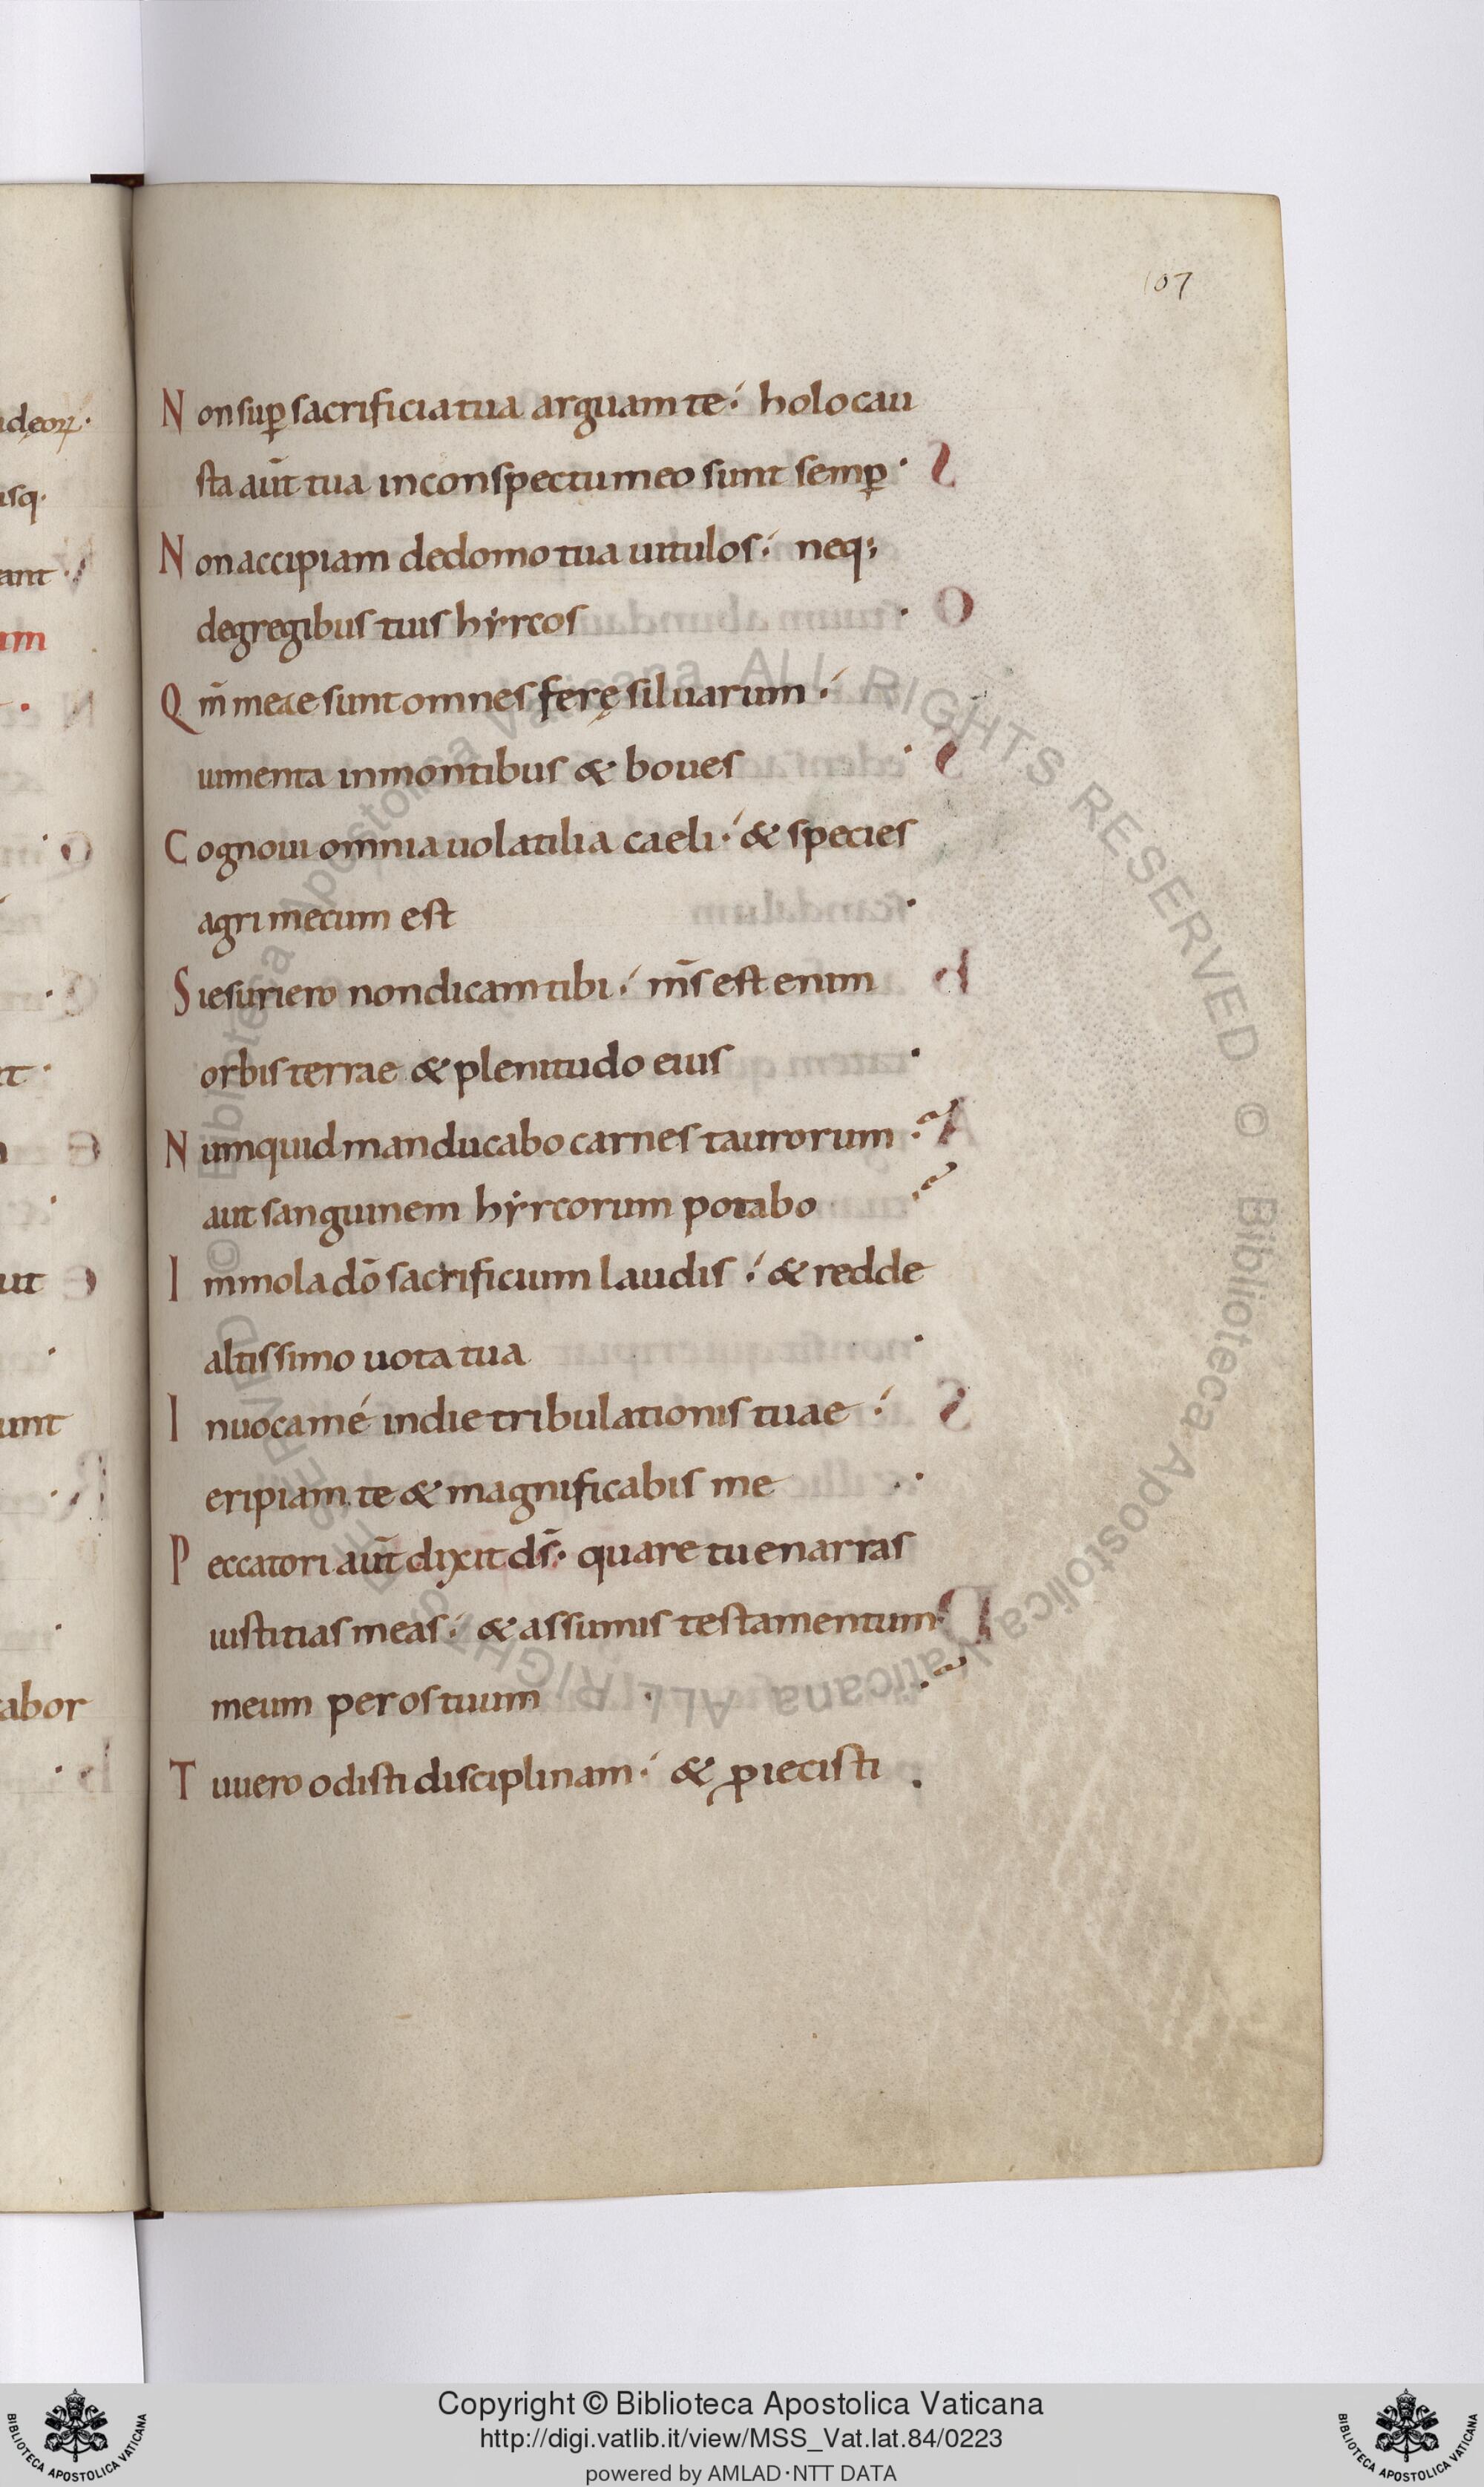 107
Non sup̄ sacrificia tua arguam te· holocau
sta aūt tua in conspectu meo sunt semp̄·
Non accipiam de domo tua uitulos· neq;
de gregibus tuis hẏrcos ·
Qm̄ meae sunt omnes ferę siluarum·
iumenta in montibus & boues ·
Cognoui omnia uolatilia caeli· & species
agri mecum est ·
Si esuriero non dicam tibi· m̄s est enim
orbis terrae & plenitudo eius ·
Numquid manducabo carnes taurorum·
aut sanguinem hẏrcorum potabo
Immola dō sacrificium laudis· & redde
altissimo uota tua ·
Inuoca mé in die tribulationis tuae·
eripiam te & magnificabis me ·
Peccatori aūt dixit d̄s· quare tu enarras
iustitias meas· & assumis testamentum
meum per os tuum ·
Tu uero odisti disciplinam· & ꝓiecisti
ideoꝝ·
usq·
ant·
um
nt·
ut
unt
abor
Copyright © Biblioteca Apostolica Vaticana
http://digi.vatlib.it/view/MSS_Vat.lat.84/0223
powered by AMLAD·NTT DATA
BIBLIOTECA APOSTOLICA VATICANA
BIBLIOTECA APOSTOLICA VATICANA
© Biblioteca Apostolica Vaticana ALL RIGHTS RESERVED
© Biblioteca Apostolica Vaticana ALL RIGHTS RESERVED